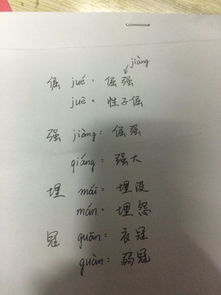 jiàng
倔 jué: 倔强
juè: 性子倔
强 jiàng: 倔强
qiáng: 强大
埋 mái: 埋没
mán: 埋怨
冠 guān: 衣冠
guàn: 弱冠